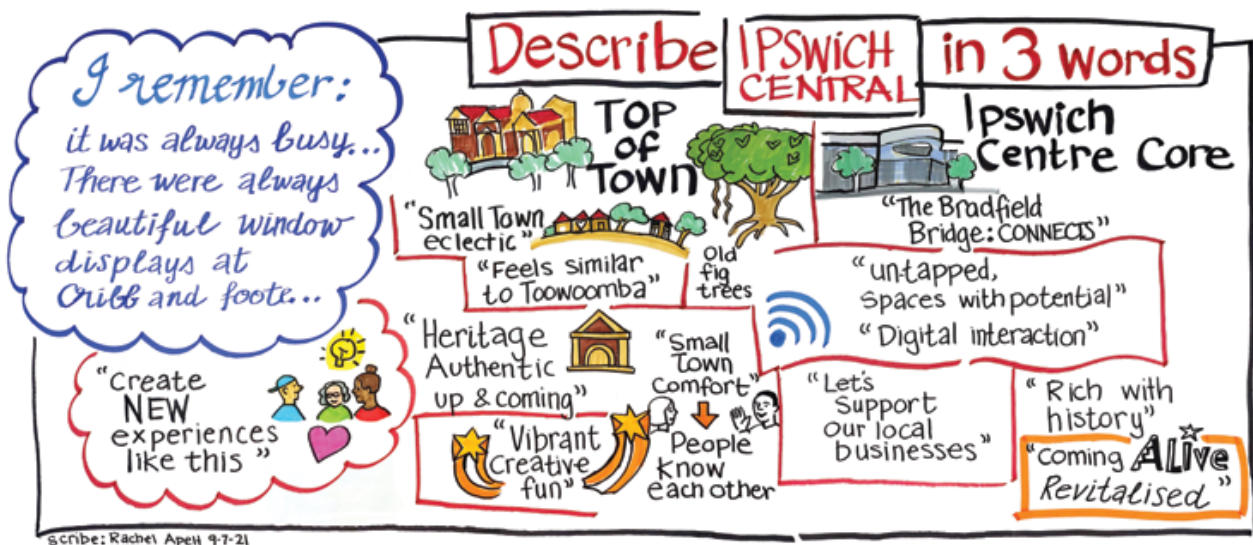 I remember:
it was always busy...
There were always
beautiful window
displays at
Cribb and foote...
"Create
NEW
experiences
like this"
Describe IPSWICH CENTRAL in 3 words
TOP
OF
TOWN
"Small Town
eclectic"
"Feels similar
to Toowoomba"
Old
fig
trees
"Heritage
Authentic
up & coming"
"Small
Town
Comfort"
People
Know
each other
"Vibrant
Creative
fun"
Ipswich
Centre Core
"The Bradfield
Bridge: CONNECTS"
"un-tapped,
spaces with potential"
"Digital interaction"
"Let's
Support
our local
businesses"
"Rich with
history"
"Coming ALIVE
Revitalised"
Scribe: Rachel Apelt 9-7-21